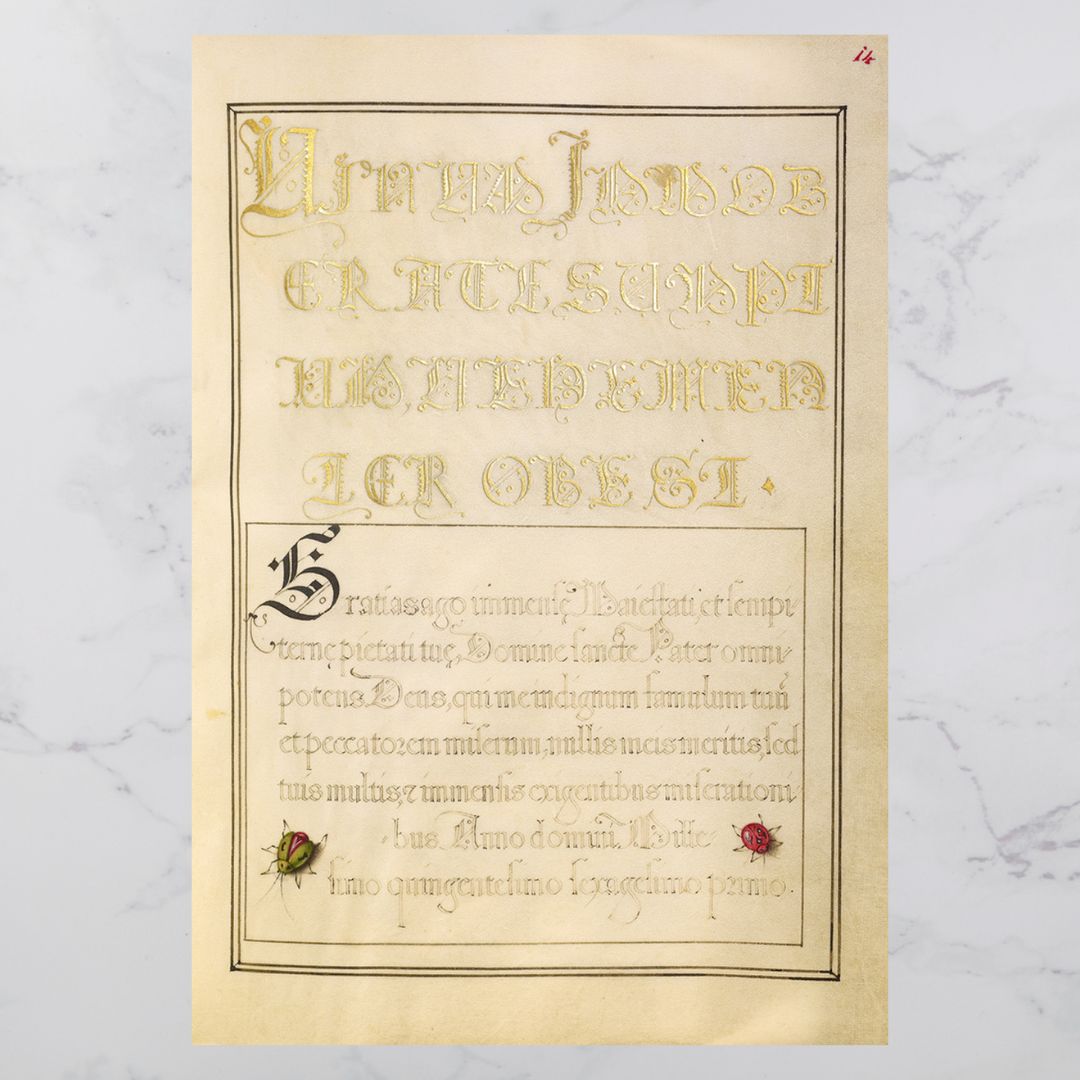 i4
IMMOD
ERATE SUMPT
UM, VEHEMEN
TER OBEST.
Gratias ago immensę Maiestati, et sempi-
ternę pietati tuę, Domine sancte Pater omni-
potens Deus, qui me indignum famulum tuū
et peccatorem miserum, nullis meis meritis, sed
tuis multis, & immensis exigentibus miserationi-
bus. Anno domini Mille-
simo quingentesimo sexagesimo primo.